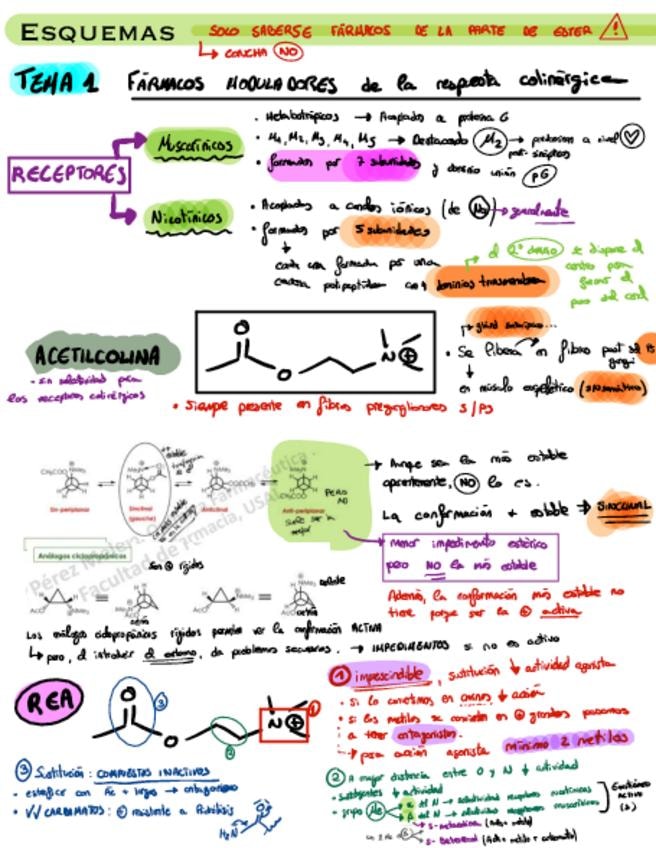 ESQUEMAS
SOLO SABERSE FÁRMACOS DE LA PARTE DE ESTER
↳ CONCHA NO
TEMA 1 FÁRMACOS MODULADORES de la respuesta colinérgica
RECEPTORES
Muscarínicos
• Metabotrópicos → Acoplados a proteína G
• M1, M2, M3, M4, M5 → Destacando M2 → predomina a nivel
post-sináptico
• formados por 7 subunidades y dominio unión PG
Nicotínicos
• Acoplados a canales iónicos (de Na) → generalmente
• formados por 5 subunidades
↓
cada una formada por una
cadena polipeptídica con 4 dominios transmembrana
el 2º dominio se dispone el
centro para
formar el
poro del canal
ACETILCOLINA
- sin selectividad para
los receptores colinérgicos
O
O
N
• Se libera en fibras post
↓
en músculo esquelético (somático)
• Siempre presente en fibras preganglionares S/PS
CH3COO
NMe3
Sin-periplanar
Sinclinal
(gauche)
Anticlinal
Anti-periplanar
PERO
NO
suele ser la
mejor
→ Aunque sea la más estable
aparentemente, NO lo es.
La conformación + estable → SINCLINAL
menor impedimento estérico
pero NO la más estable
Análogos ciclopropánicos
son rígidos
Facultad de Farmacia, USAL
Además, la conformación más estable no
tiene porque ser la activa
AcO
NMe3
Los análogos ciclopropánicos rígidos permiten ver la conformación ACTIVA
↳ pero, al introducir el carbono, da problemas secundarios. → IMPEDIMENTOS si no es activo
REA
O
3
O
2
N
1
① imprescindible, sustitución ↓ actividad agonista
• si lo cambiamos en carbonos ↓ acción
• si los metilos se cambian en grandes pasamos
a tener antagonistas.
→ para acción agonista mínimo 2 metilos
③ Sustitución: COMPUESTOS INACTIVOS
• esterificar con Ac + largo → antagonismo
• VV CARBAMATOS: resistente a hidrólisis
H2N
② A mayor distancia entre O y N ↓ actividad
• sustituyentes ↓ actividad
• grupo Me α del N → selectividad receptores nicotínicos
β del N → selectividad receptores muscarínicos
S-metacolina (Ach + metilo)
S-Betanecol (Ach + metilo + carbamato)
Enantiómero
ACTIVO
(S)